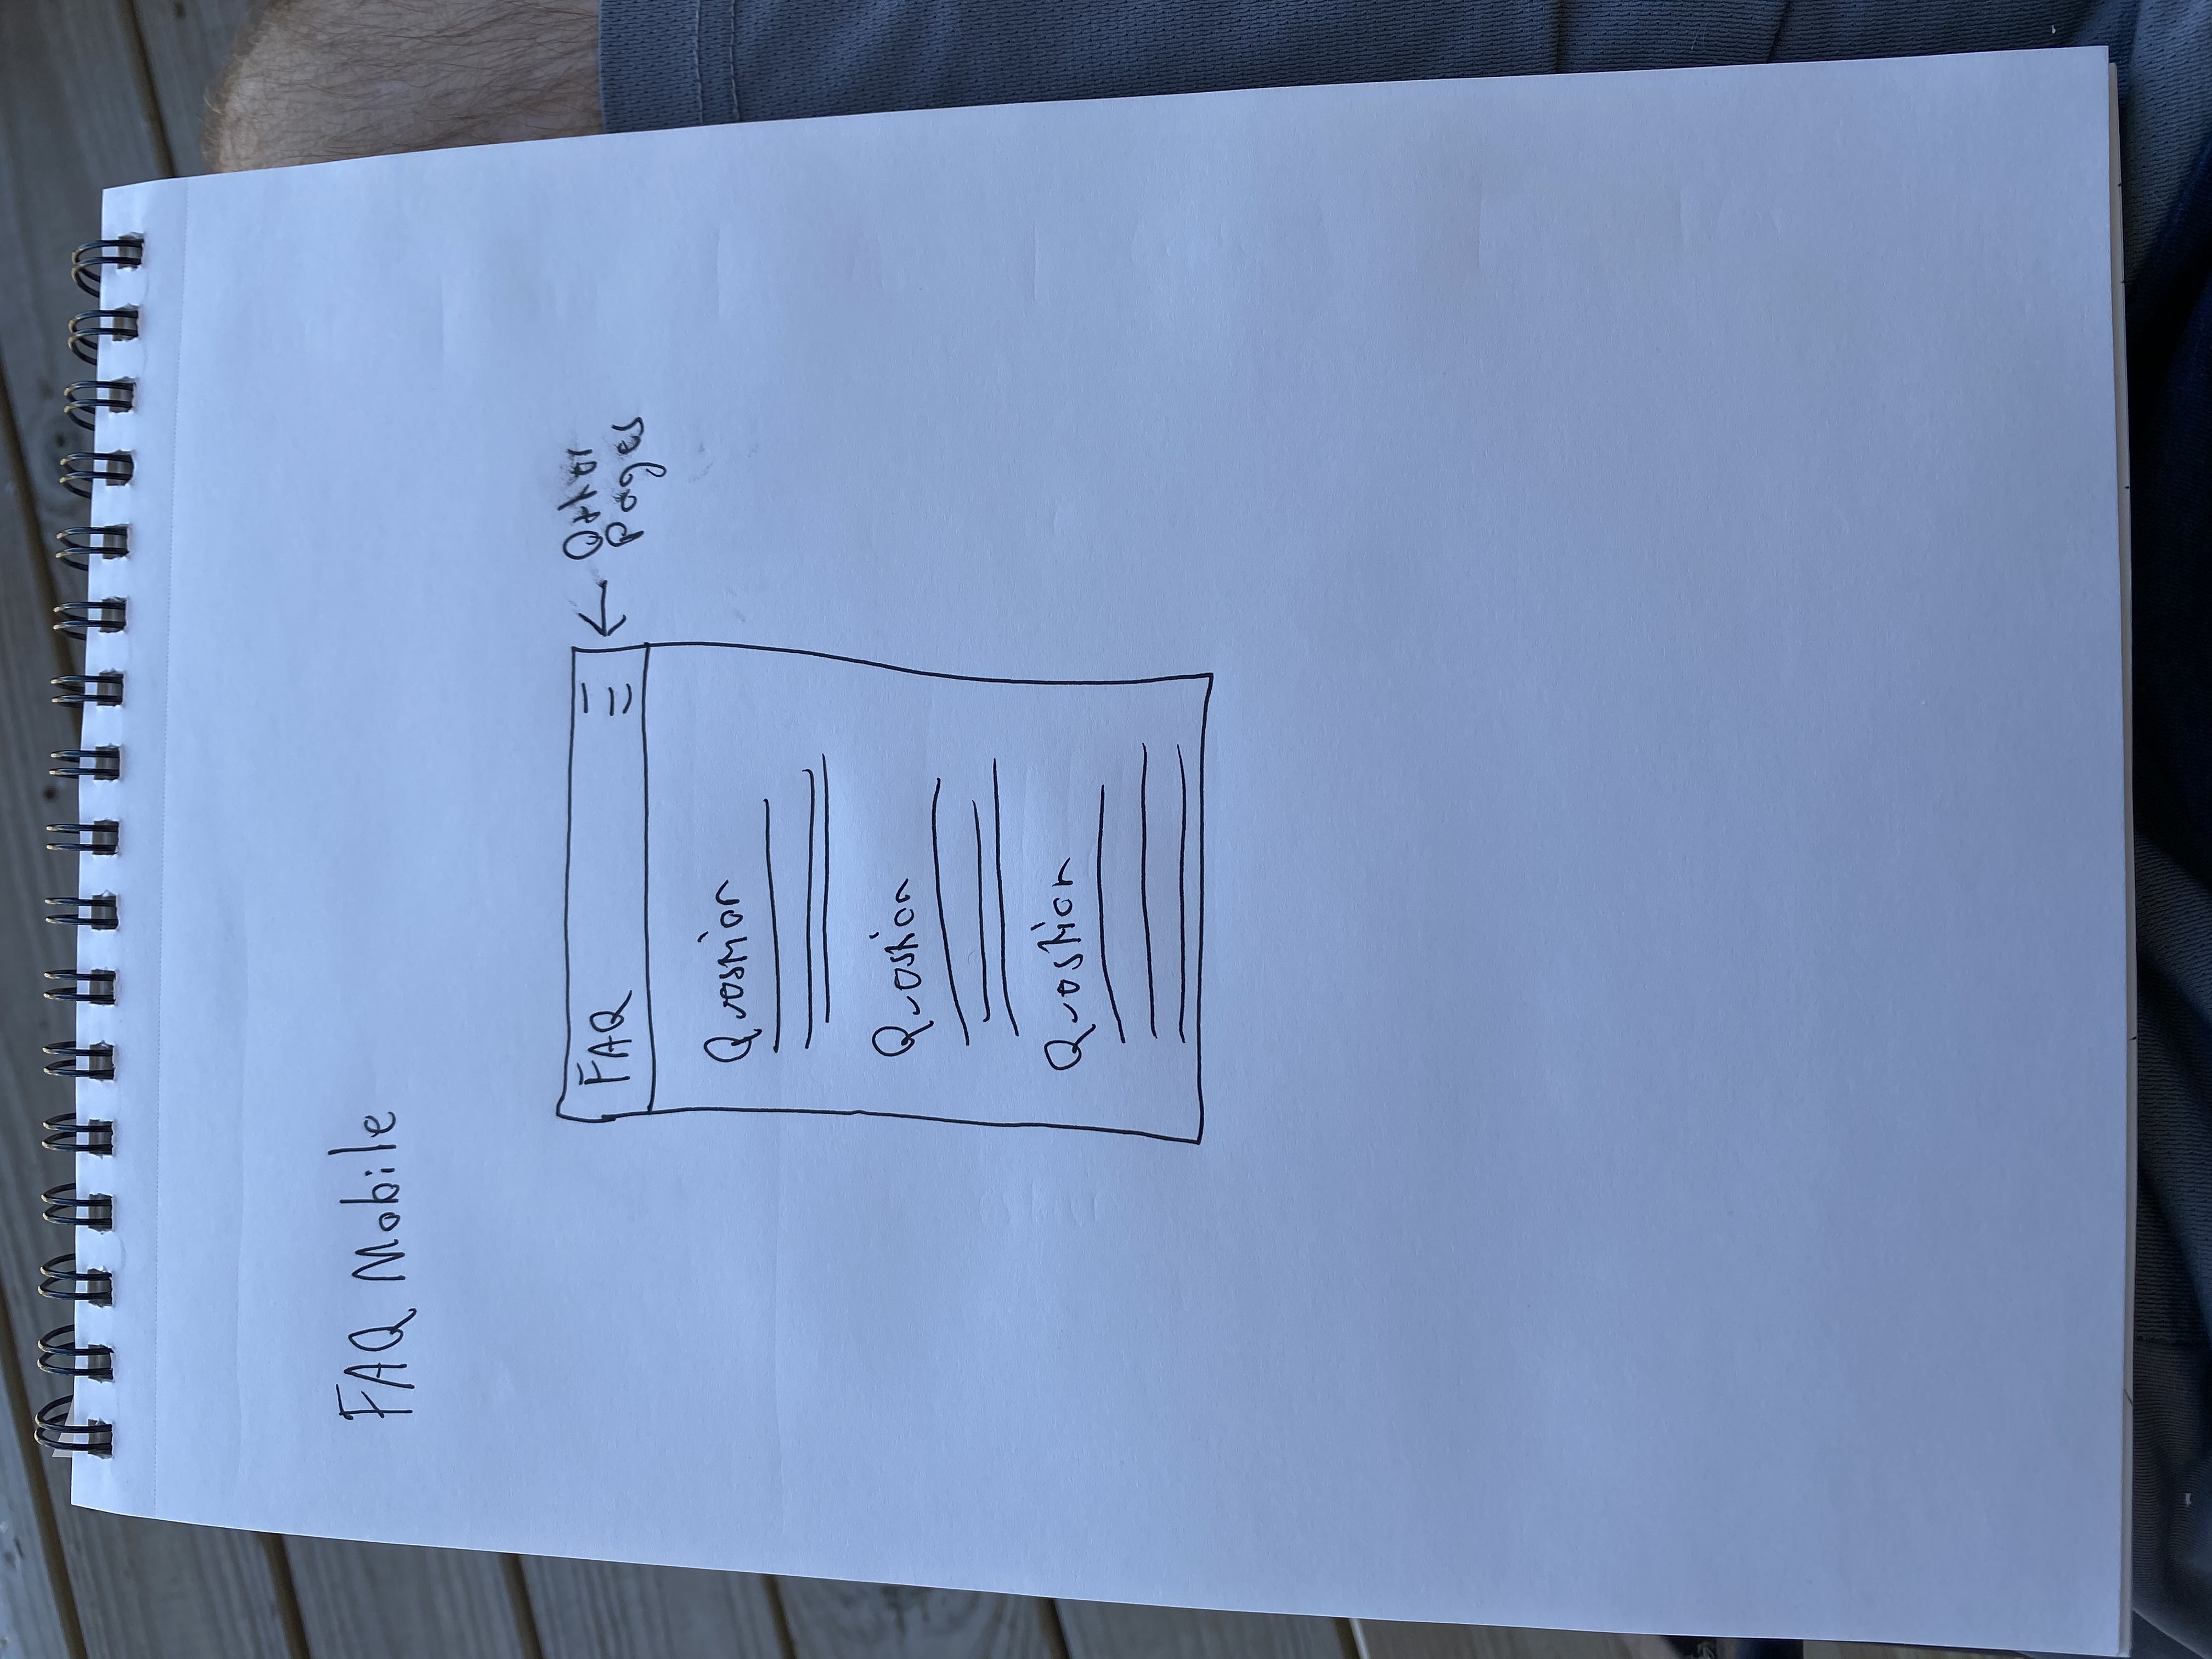 FAQ Mobile
FAQ
Other
Pages
Question
Question
Question